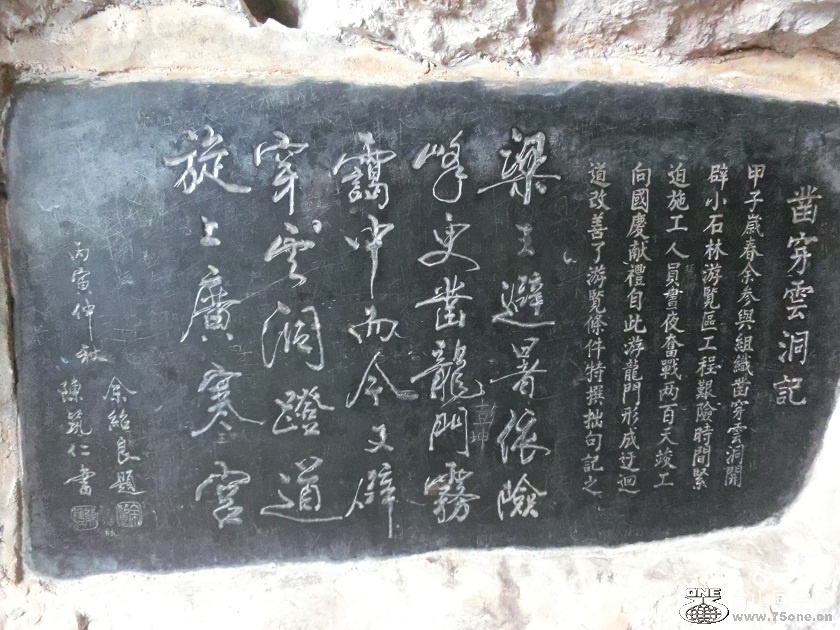 凿穿雲洞記
甲子歲春余参與組織凿穿雲洞開
辟小石林游覽區工程艱險時間緊
迫施工人員晝夜奮戰两百天竣工
向國慶献禮自此游龍門形成迂迴
道改善了游覽條件特撰拙句記之
梁王避暑依險
峰更凿龍門霧
靄中而今又辟
穿雲洞蹬道
旋上廣寒宫
丙寅仲秋
余紹良題
陳笂仁書
ONE
www.75one.cn